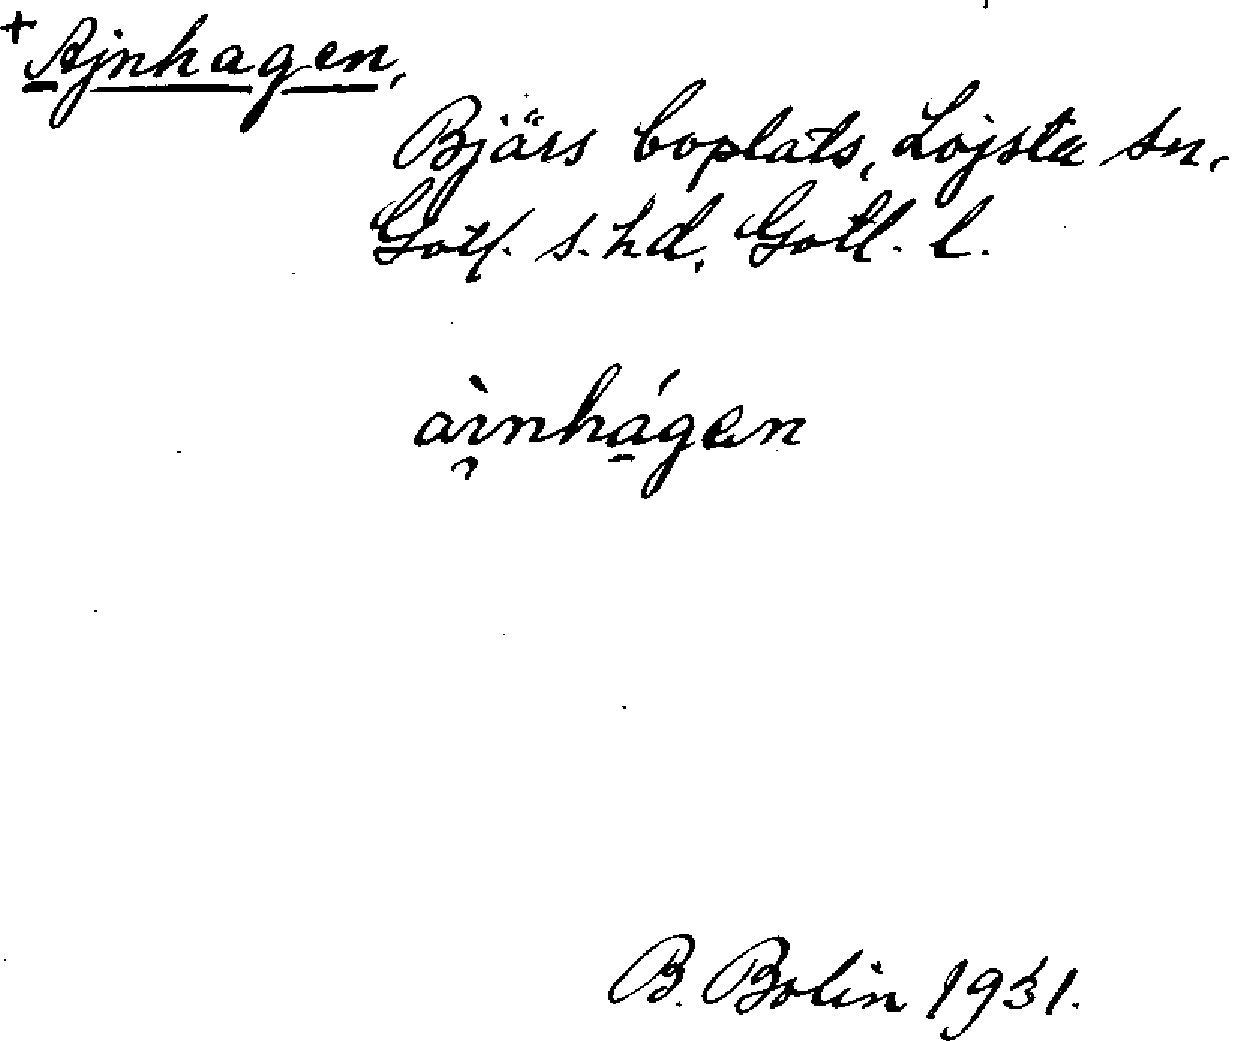 + Ajnhagen,
Bjärs boplats, Lojsta sn,
Gotl. s. hd, Gotl. l.
ài̯nhá̱gen
B. Bolin 1931.